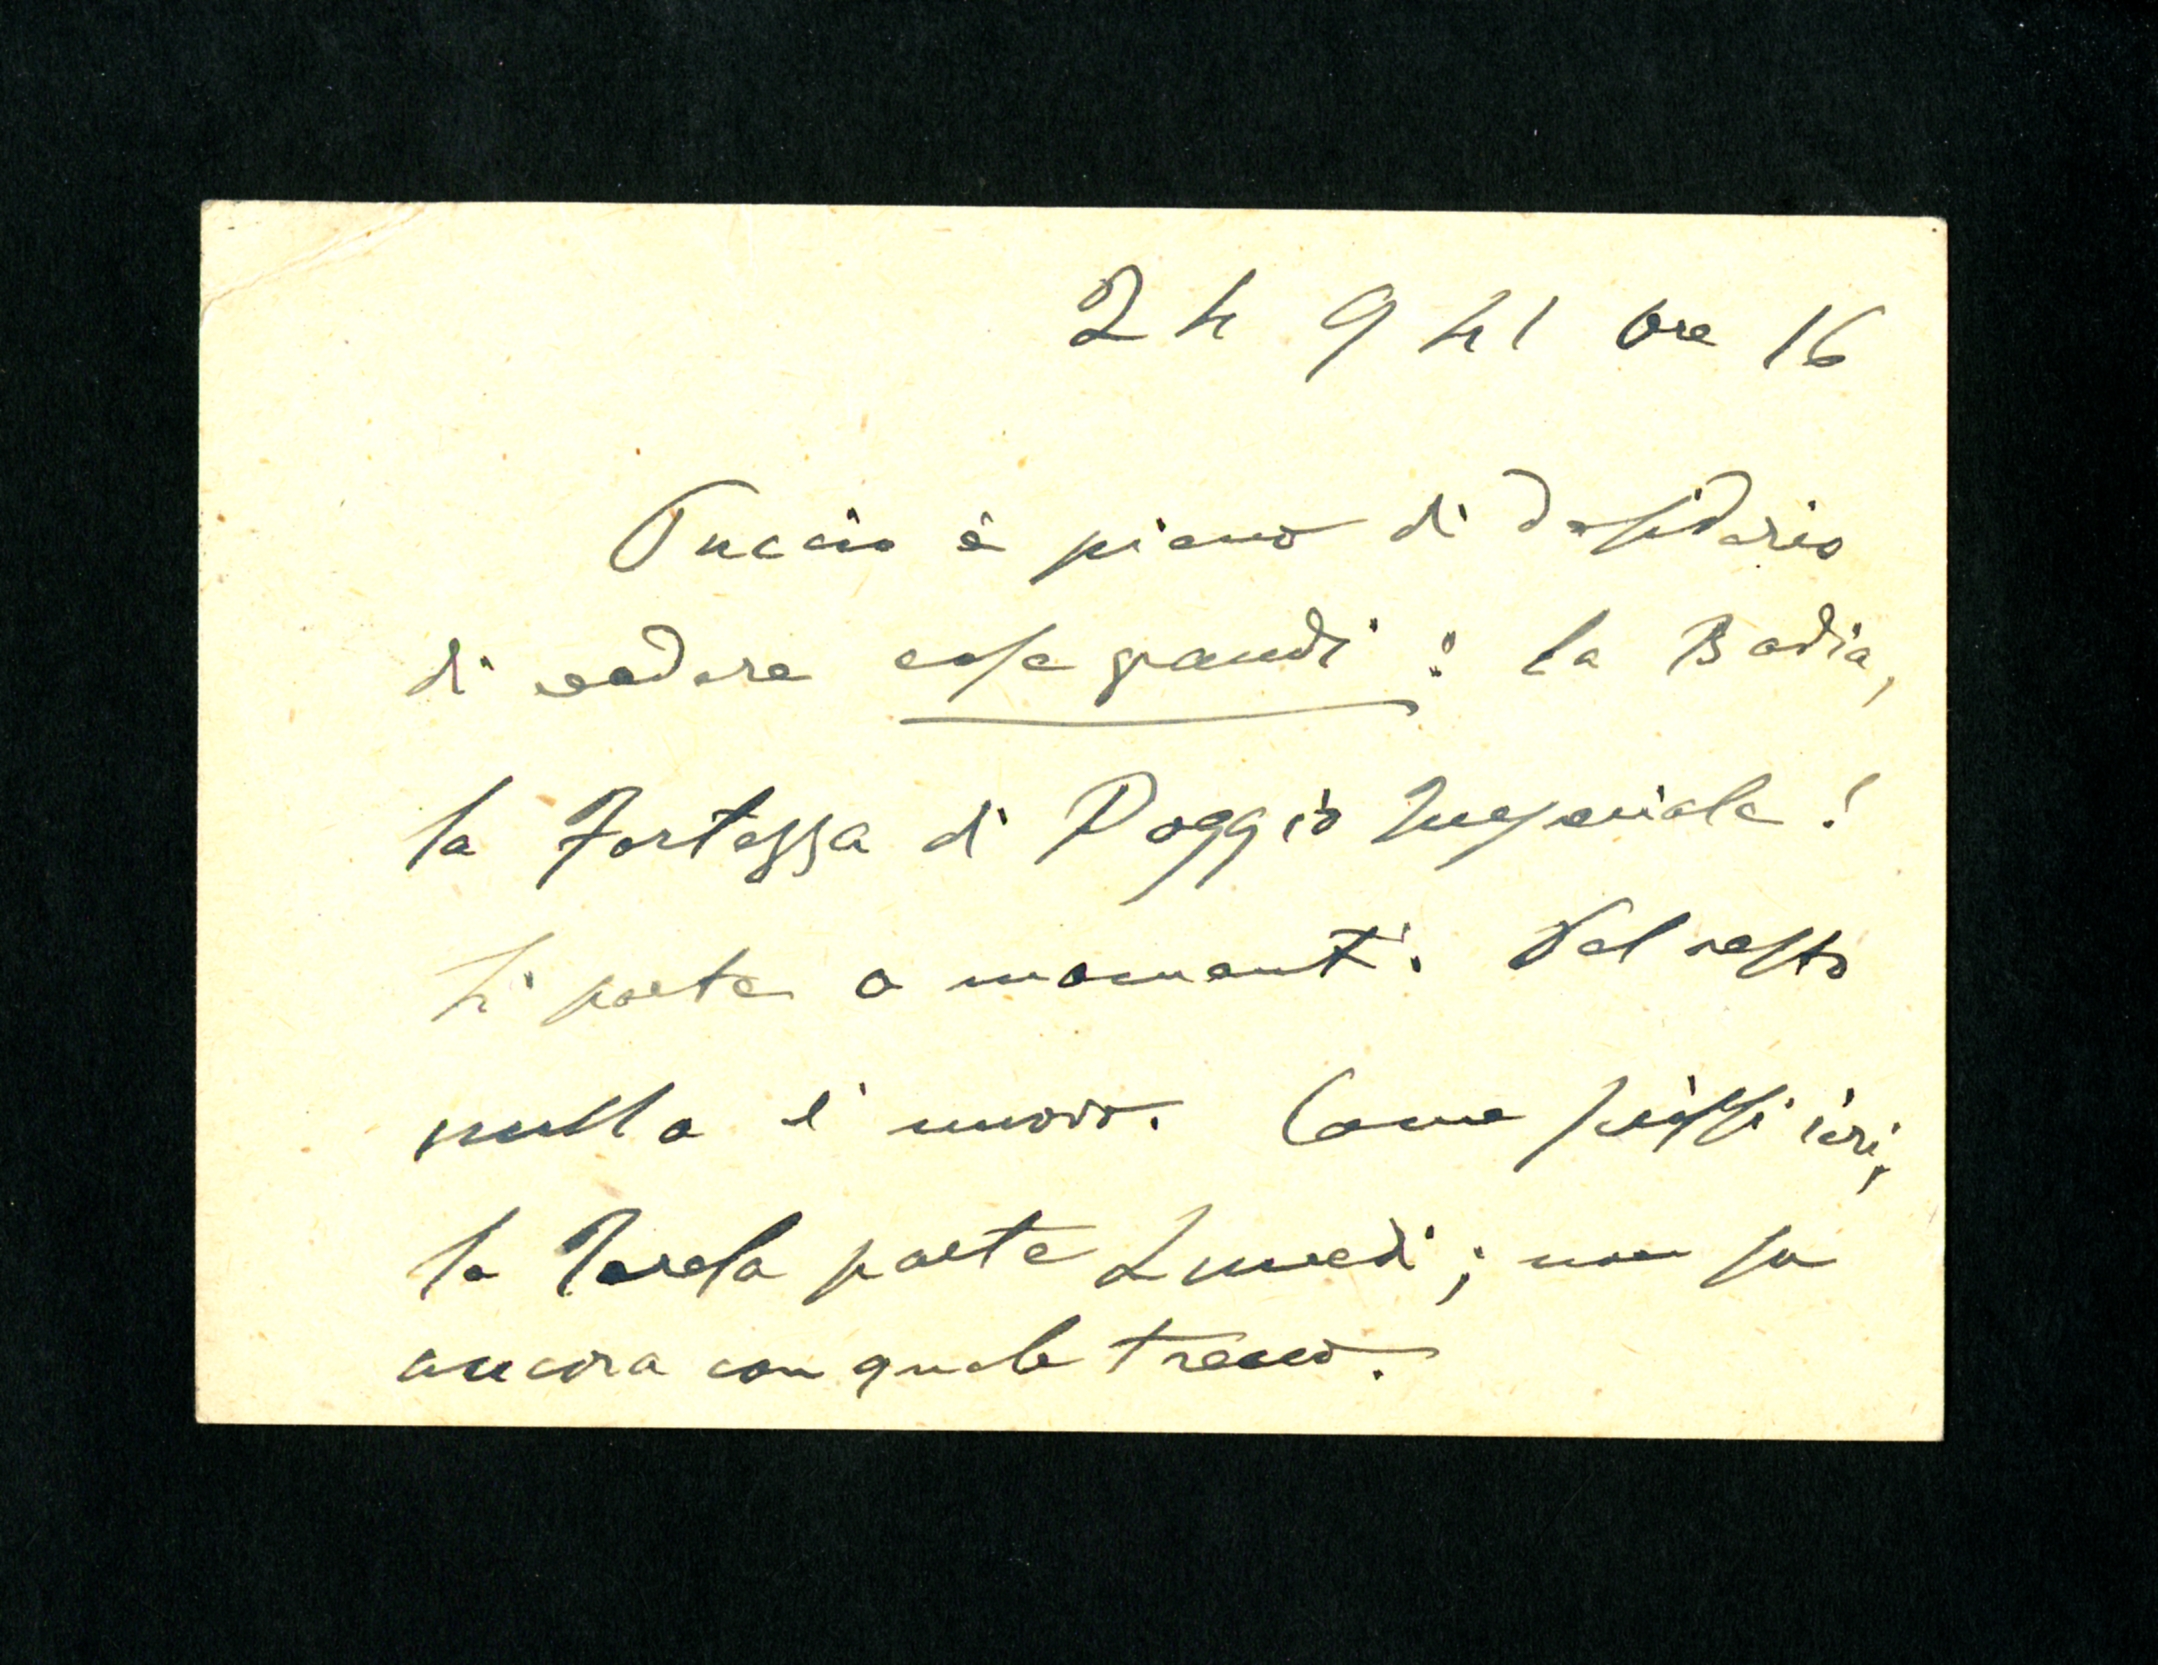 24 9 41 ore 16
Puccio è pieno di desiderio
di vedere case grandi: la Badia,
la Fortezza di Poggio Imperiale!
Si parte a momenti. Del resto
nulla di nuovo. Come scrissi ieri,
la parte Lunedì; non so
ancora con quale treno.